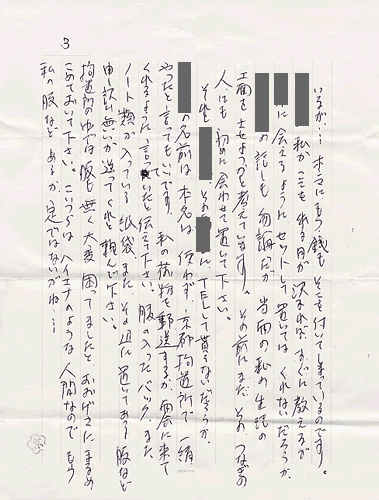 3
いるが…本マにもう銭もそこを付いてしまっているのです。
私がここを出る日が決まれば、すぐに教えるが
に会えるようにセットして置いてはくれないだろうか
の話しも勿論だが当面の私の生活の
工面をさせようかと考えてます。その前にまだその
人にも初めに会わせて置いて下さい。
それと その に、TELして貰えないだろうか、
の名前は本名は使わず、京都拘置所で一緒
やったと言ってもいいです。私の荷物を郵送するか面会に来て
くれるように言っていたと伝えて下さい。服の入ったバック、また
ノート類が入っている紙袋また、その辺に置いてある服など
申し訳無いが送ってくれと頼んで下さい。
拘置所の中では服も無く大変困ってましたとおおげさにまるめ
こめておいて下さい。こいつらはハイエナのような人間なのでもう
私の服など あるか定ではないがね…